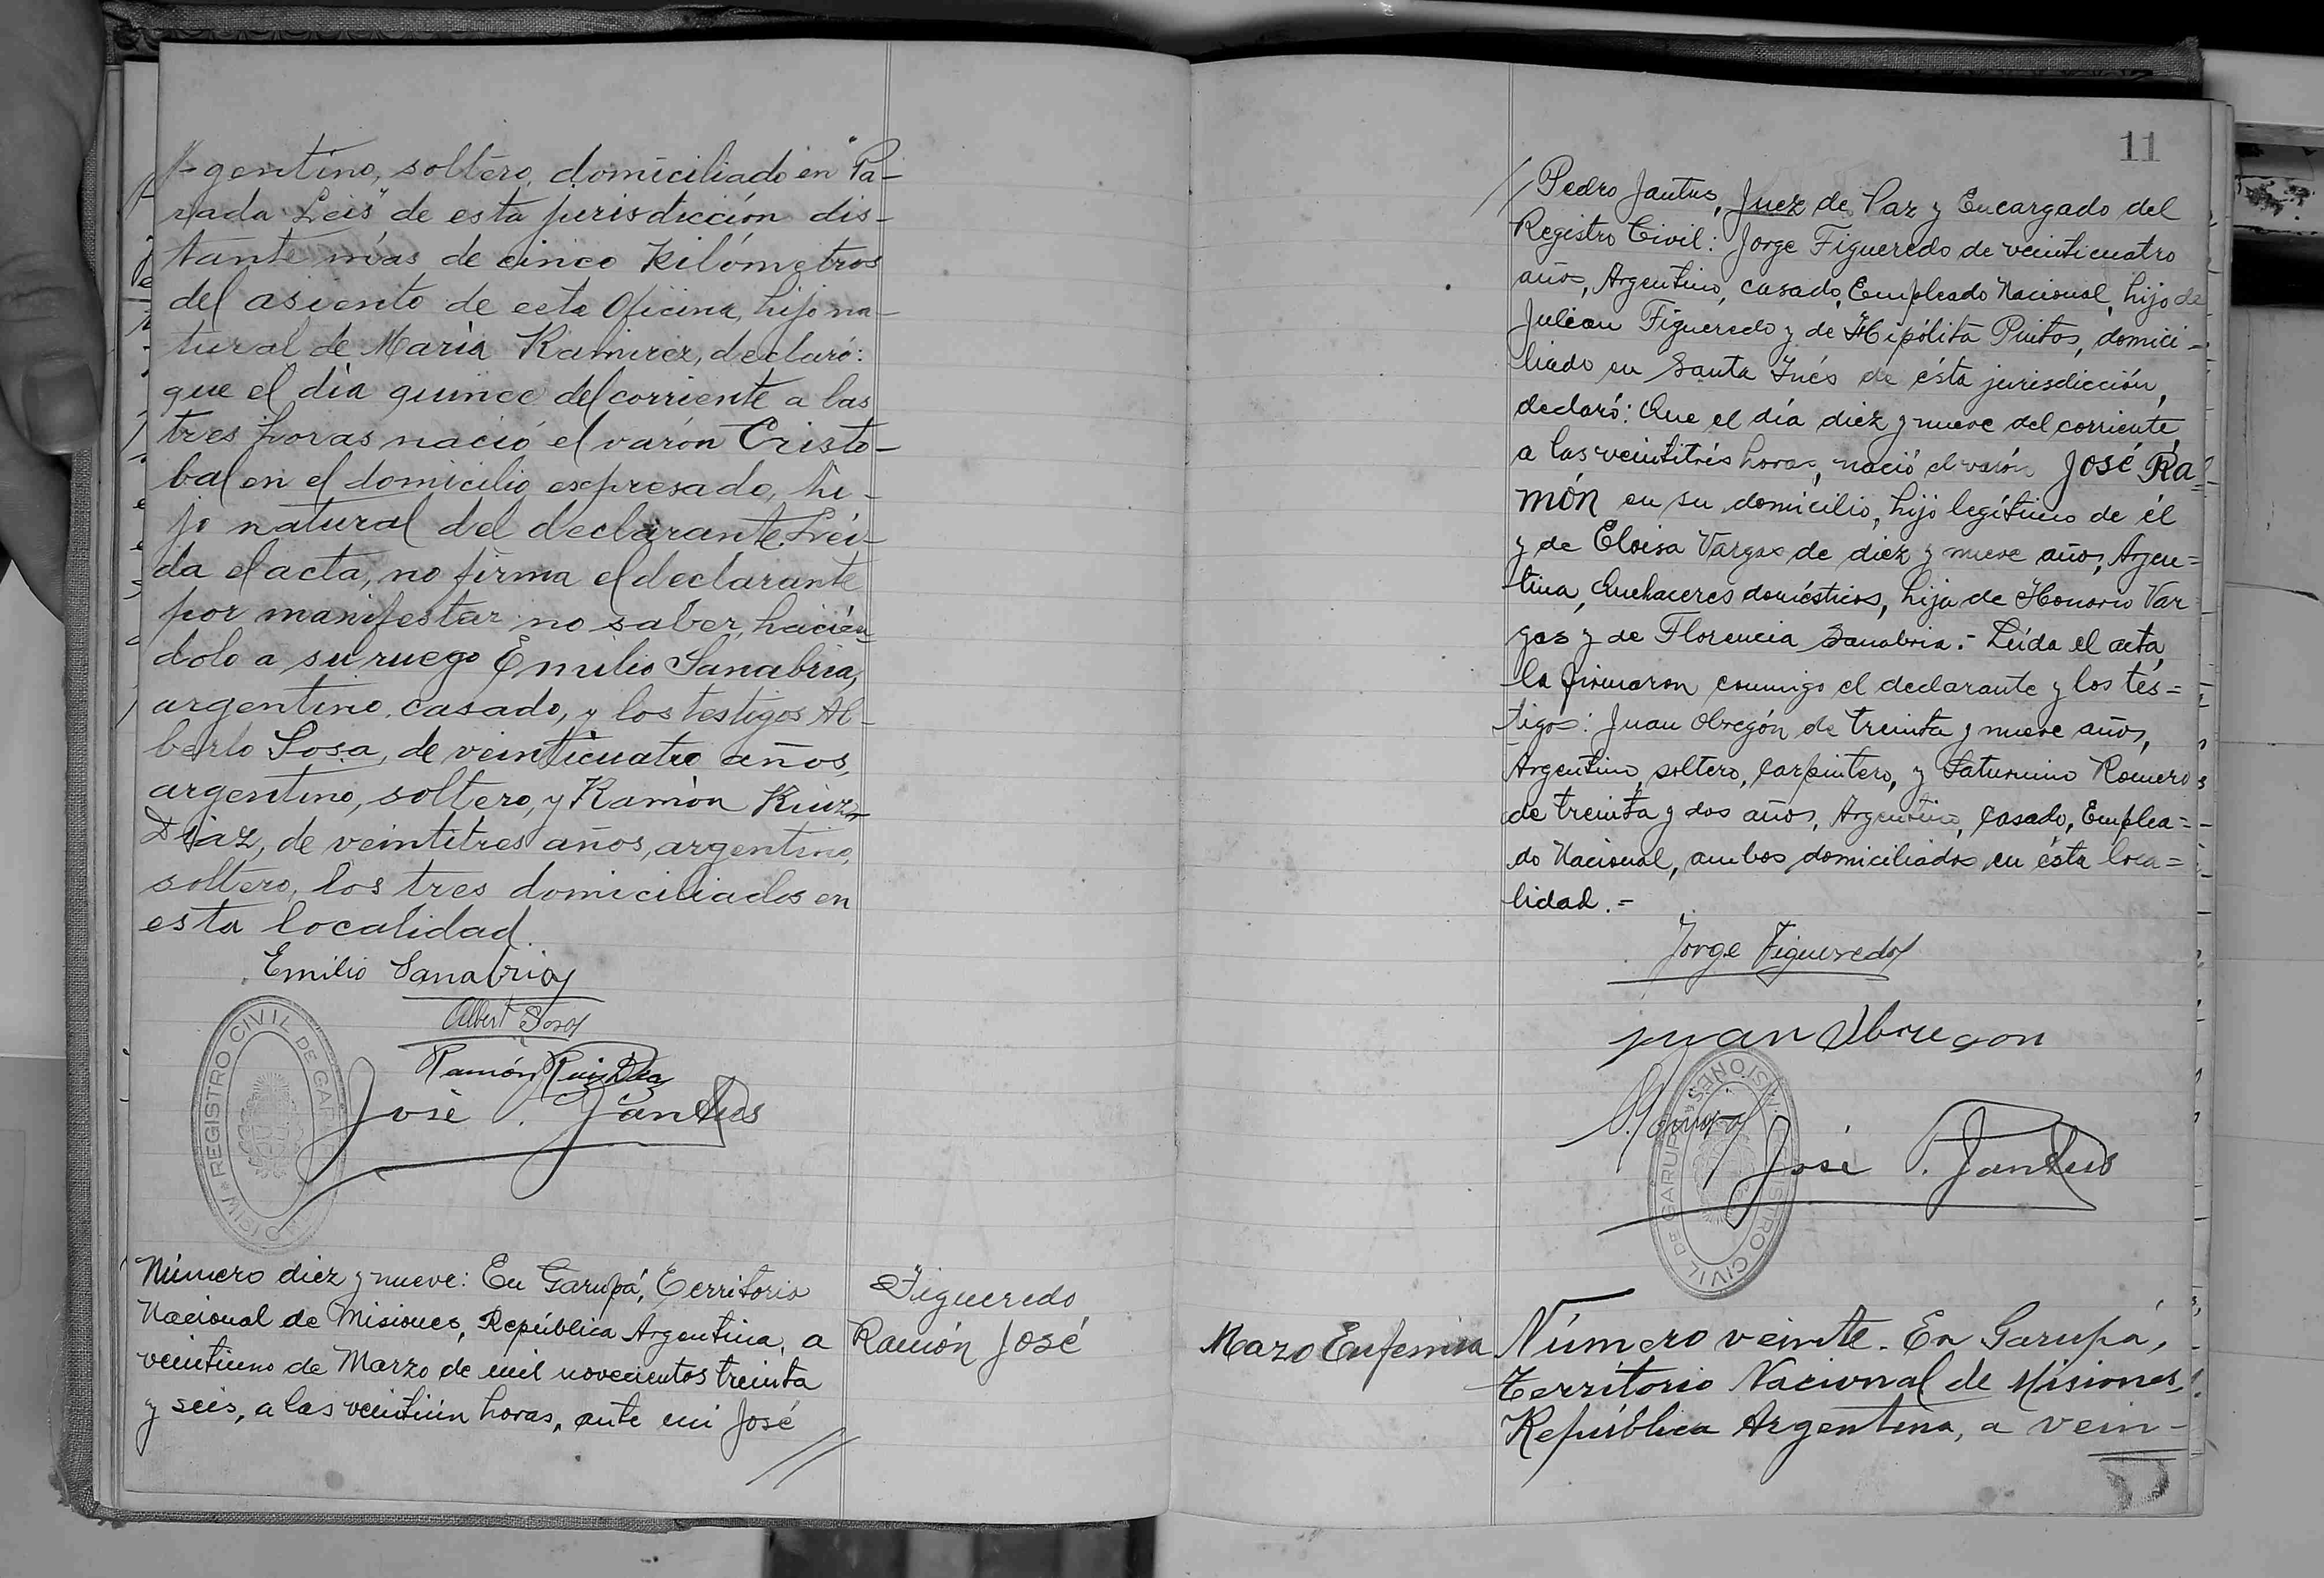 gentino, soltero, domiciliado en "Pa-
rada Leis" de esta jurisdicción dis-
tante más de cinco Kilómetros
del asiento de esta Oficina, hijo na-
tural de María Ramirez, declaró:
que el día quince del corriente a las
tres horas nació el varón Cristo-
bal en el domicilio expresado, hi-
jo natural del declarante. Leí-
da el acta, no firma el declarante
por manifestar no saber, hacién
dolo a su ruego Emilio Sanabria,
argentino, casado, y los testigos Al-
berto Sosa, de veinticuatro años,
argentino, soltero, y Ramón Ruiz
Diaz, de veintitres años, argentino,
soltero, los tres domiciliados en
esta localidad.
Emilio Sanabria
Albert Sosa
Ramón Ruiz Diaz
José P. Jantus
REGISTRO CIVIL DE GARUPÁ
Número diez y nueve: En Garupá, Territorio
Nacional de Misiones, República Argentina, a
veintiuno de Marzo de mil novecientos treinta
y seis, a las veintiún horas, ante mi José
//
Figueredo
Ramón José
11
// Pedro Jantus, Juez de Paz y Encargado del
Registro Civil: Jorge Figueredo de veinticuatro
años, Argentino, casado, Empleado Nacional, hijo de
Julian Figueredo y de Hipólita Pintos, domici-
liado en Santa Inés de ésta jurisdicción,
declaró: Que el día diez y nueve del corriente,
a las veintitrés horas, nació el varón José Ra=
món en su domicilio, hijo legítimo de él
y de Eloisa Vargas de diez y nueve años, Argen=
tina, Quehaceres domésticos, hija de Honorio Var
gas y de Florencia Sanabria.- Leída el acta,
la firmaron conmigo el declarante y los tes=
tigos: Juan Obregón de treinta y nueve años,
Argentino, soltero, Carpintero, y Saturnino Romero
de treinta y dos años, Argentino, Casado, Emplea=
do Nacional, ambos domiciliados en ésta loca=
lidad.=
Jorge Figueredo
Juan Obregon
José P. Jantus
REGISTRO CIVIL DE GARUPÁ MISIONES
Mazo Eufemia
Número veinte. En Garupá,
Territorio Nacional de Misiones,
República Argentina, a vein-